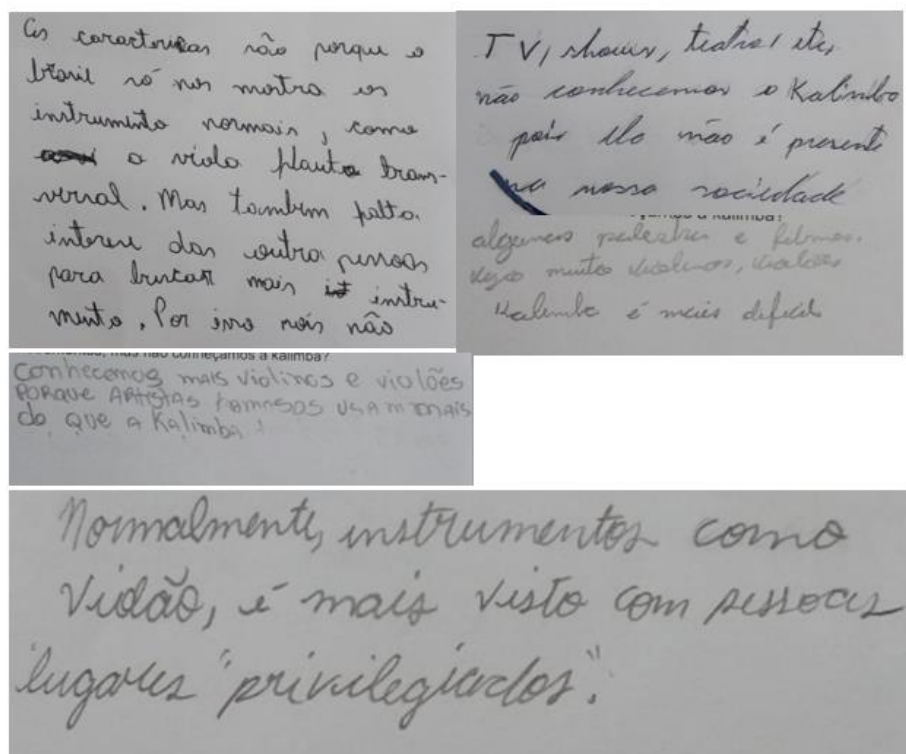 As caracteriscas não porque o
brasil só nos mostra os
instrumento normais, como
a viola flauta trans-
versal. Mas tambem falta
interese das outra pessoas
para buscar mais instru-
mento. Por isso nós não
TV, shows, teatro, etc,
não conhecemos o Kalimba
pois ela não é presente
na nossa sociedade
algumas palestras e filmes.
Vejo muitos violinos, violões
Kalimba é mais dificil
mas não conheçamos a kalimba?
Conhecemos mais violinos e violões
PORQUE ARTISTAS famosos USAM mais
do QUE a Kalimba!
Normalmente, instrumentos como
Violão, é mais visto com pessoas
lugares "privilegiados".